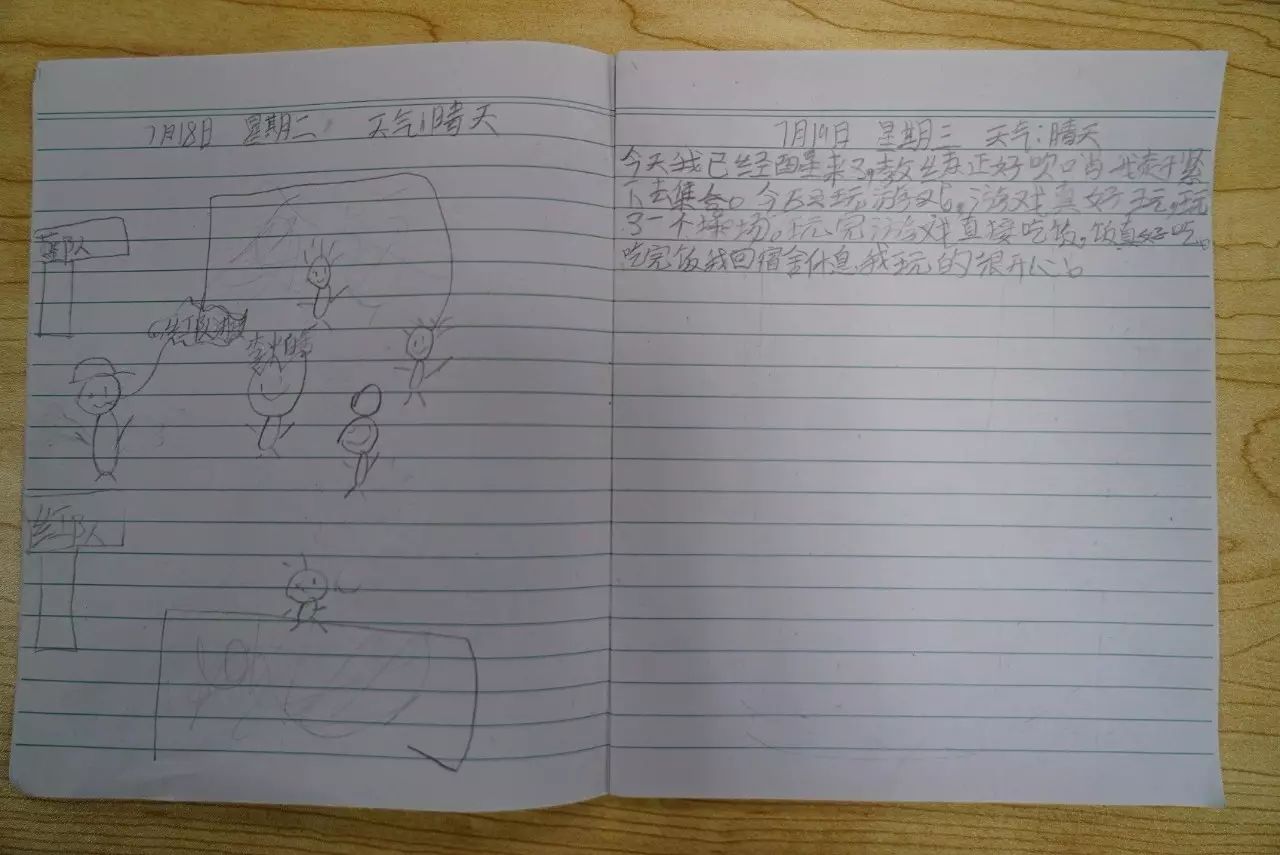 7月18日 星期二 天气:晴天
蓝队
红队
李
红队
7月19日 星期三 天气:晴天
今天我已经醒来了,教练正好吹口哨我赶紧
下去集合。今天又玩游戏,游戏真好玩,玩
了一个操场。玩完游戏直接吃饭,饭真好吃。
吃完饭我回宿舍休息,我玩的很开心。